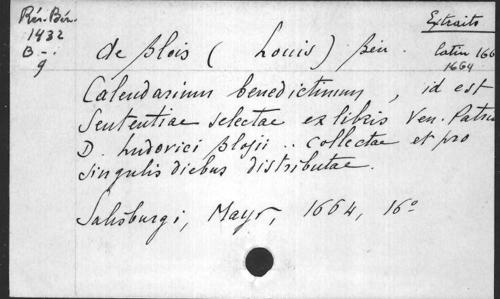 Rés. Bén. Extraits
1432
B - :
9
de Blois ( Louis ) Bén. latin 166
1664
Calendarium benedictinum, id est
Sententiae selectae ex libris Ven. Patris
D. Ludovici Blosii .. collectae et pro
singulis diebus distributae.
Salisburgi, Mayr, 1664, 16°